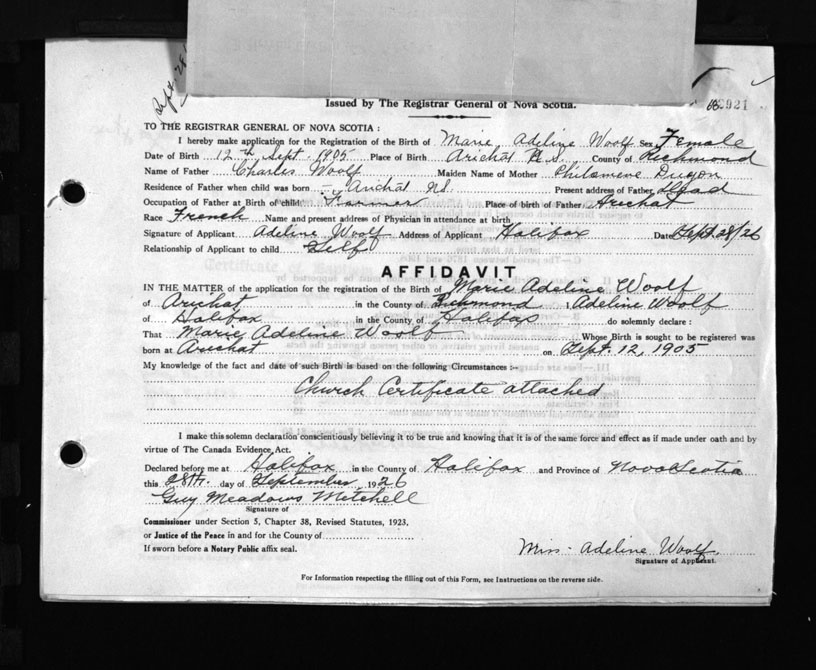 Sept. 28/
Issued by The Registrar General of Nova Scotia.
2921
TO THE REGISTRAR GENERAL OF NOVA SCOTIA :
I hereby make application for the Registration of the Birth of Marie Adeline Woolf Sex Female
Date of Birth 12th Sept 1905 Place of Birth Arichat County of Richmond
Name of Father Charles Woolf Maiden Name of Mother Philomene Dugon
Residence of Father when child was born Arichat N.S. Present address of Father
Occupation of Father at Birth of child Farmer Place of birth of Father Arichat
Race French Name and present address of Physician in attendance at birth
Signature of Applicant Adeline Woolf Address of Applicant Halifax Date Sept. 28/26
Relationship of Applicant to child Self
AFFIDAVIT
IN THE MATTER of the application for the registration of the Birth of Marie Adeline Woolf
of Arichat in the County of Richmond I Adeline Woolf
of Halifax in the County of Halifax do solemnly declare :
That Marie Adeline Woolf Whose Birth is sought to be registered was
born at Arichat on Sept. 12, 1905
My knowledge of the fact and date of such Birth is based on the following Circumstances :-
Church Certificate attached
I make this solemn declaration conscientiously believing it to be true and knowing that it is of the same force and effect as if made under oath and by
virtue of The Canada Evidence Act.
Declared before me at Halifax in the County of Halifax and Province of Nova Scotia
this 28th. day of September 1926
Guy Meadows Mitchell
Signature of
Commissioner under Section 5, Chapter 38, Revised Statutes, 1923,
or Justice of the Peace in and for the County of
If sworn before a Notary Public affix seal.
Miss Adeline Woolf
Signature of Applicant.
For Information respecting the filling out of this Form, see Instructions on the reverse side.